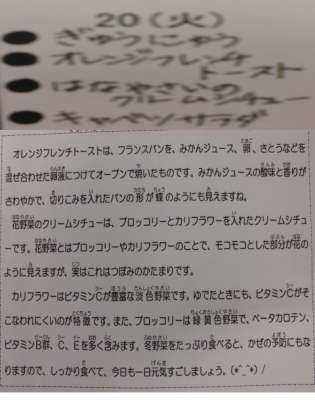 20(火)
● ぎゅうにゅう
● オレンジフレンチトースト
● はなやさいのクリームシチュー
● キャベツサラダ
オレンジフレンチトーストは、フランスパンを、みかんジュース、卵、さとうなどを
混ぜ合わせた卵液につけてオーブンで焼いたものです。みかんジュースの酸味と香りが
さわやかで、切りこみを入れたパンの形が蝶のようにも見えますね。
花野菜のクリームシチューは、ブロッコリーとカリフラワーを入れたクリームシチュ
ーです。花野菜とはブロッコリーやカリフラワーのことで、モコモコとした部分が花の
ように見えますが、実はこれはつぼみのかたまりです。
カリフラワーはビタミンCが豊富な淡色野菜です。ゆでたときにも、ビタミンCがそ
こなわれにくいのが特徴です。また、ブロッコリーは緑黄色野菜で、ベータカロテン、
ビタミンB群、C、Eを多く含みます。冬野菜をたっぷり食べると、かぜの予防にもな
りますので、しっかり食べて、今日も一日元気すごしましょう。(*^_^*)/